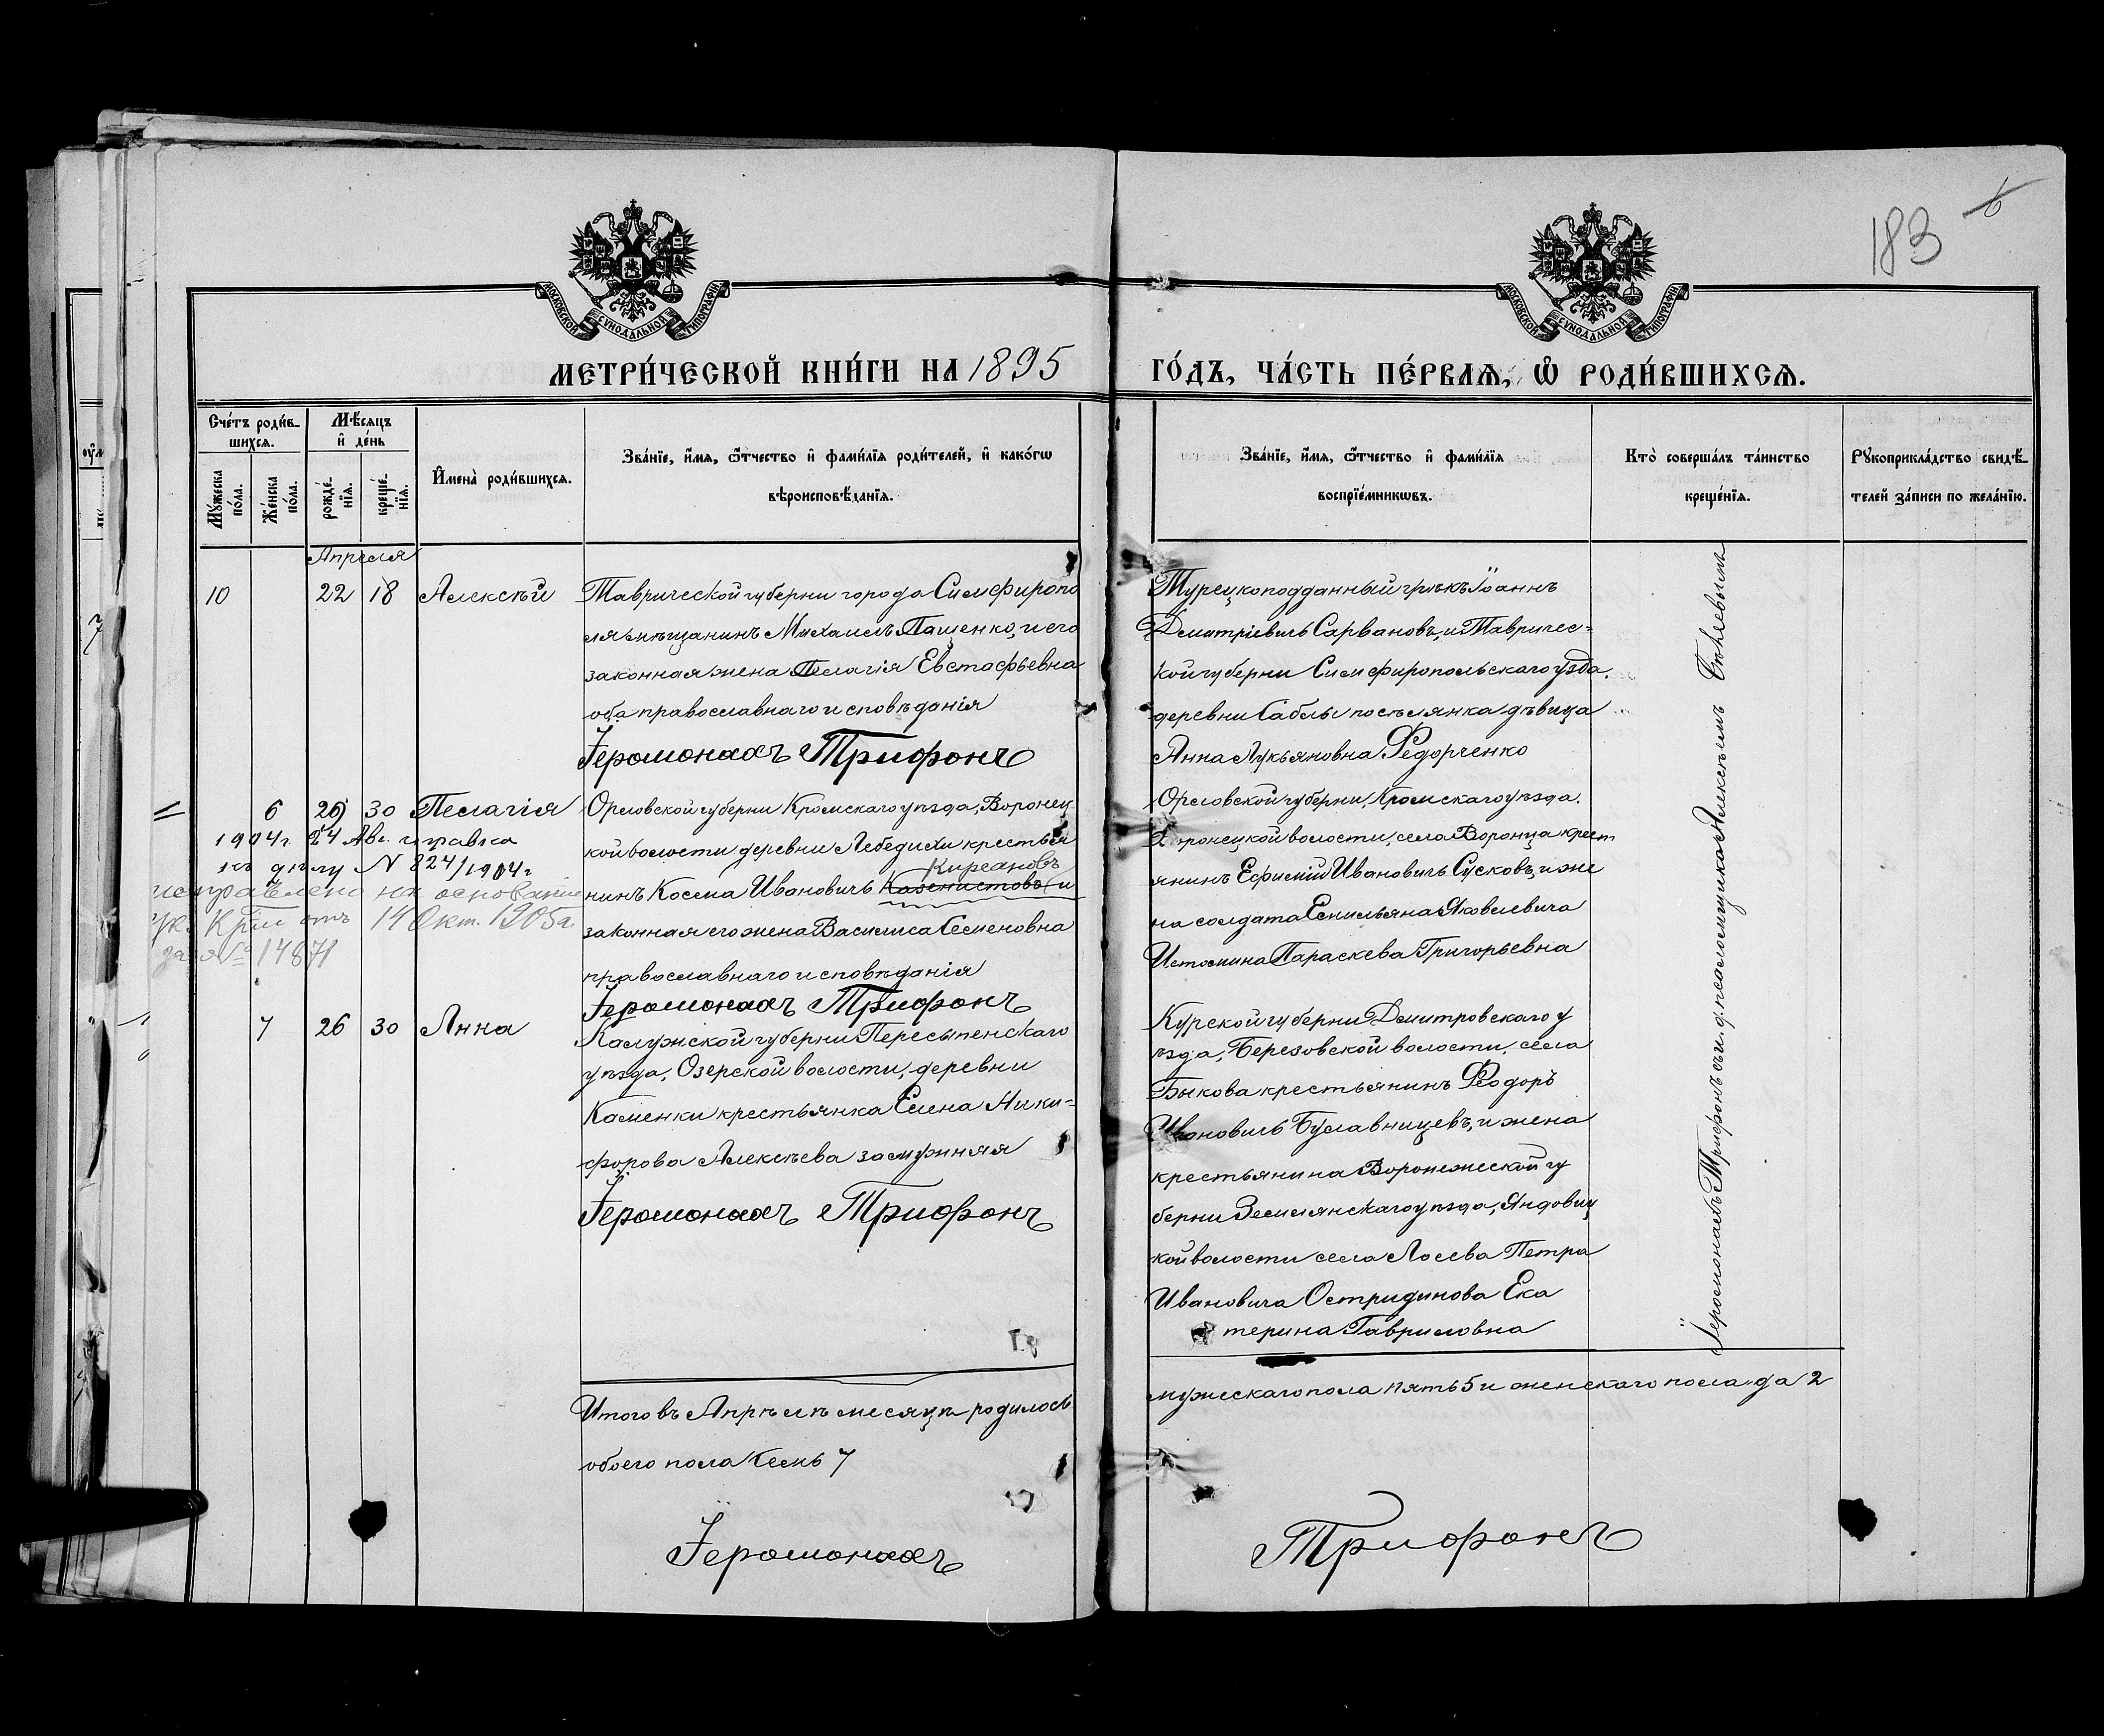 183
6
МОСКОВСКОЙ СѴНОДАЛЬНОЙ ТИПОГРАФІИ
МОСКОВСКОЙ СѴНОДАЛЬНОЙ ТИПОГРАФІИ
МЕТРИ́ЧЕСКОЙ КНИ́ГИ НА 1895
ГО́ДЪ, ЧА́СТЬ ПЕ́РВАЯ, Ѽ РОДИ́ВШИХСЯ.
Сче́тъ роди́в-
шихся.
Мѣ́сяцъ
и҆ де́нь
Мꙋ́жеска
по́ла.
Же́нска
по́ла.
рожде́-
нїя.
креще́-
нїя.
И҆мена̀ роди́вшихся.
Зва́нїе, и҆́мя, ѻ҆́тчество и҆ фами́лїя роди́телей, и҆ како́гѡ
вѣроисповѣ́данїя.
Зва́нїе, и҆́мя, ѻ҆́тчество и҆ фами́лїя
воспрїе́мникѡвъ.
Кто̀ соверша́лъ та́инство
креще́нїя.
Рꙋкоприкла́дство свидѣ́-
телей за́писи по жела́нїю.
Апреля
10 22 18 Алексѣй
Таврической губерни города Симфиропо
ля мѣщанинъ Михаилъ Пащенко, и его
законная жена Пелагія Евстафьевна
оба православнаго исповѣданія
Іеромонахъ Трифонъ
Турецкоподданный грѣкъ Іоаннъ
Дмитріевичь Сарвановъ, и Тавричес=
кой губерни Симфиропольскаго уѣзда.
деревни Саблы поселянка дѣвица
Анна Лукьяновна Федорченко
6 26 30 Пелагія
1904г. 24 Авг. справка
къ дѣлу N 824/1904г
исправлено на основаніи
ук. отъ 14 Окт. 1905г.
за № 14871
Орловской губерни Кромскаго уѣзда, Воронец
кой волости деревни Лебедихи крестья
Кирсановъ
нинъ Косма Ивановичь и
законная его жена Василиса Семеновна
православнаго исповѣданія
Іеромонахъ Трифонъ
Орловской губерни, Кромскаго уѣзда.
Воронецкой волости, села Воронца крест
янинъ Ефимій Ивановичь Сусковъ, и же
на солдата Емильяна Яковлевича
Истомина Параскева Григорьевна
7 26 30 Анна
Калужской губерни Пересыпенскаго
уѣзда, Озерской волости, деревни
Каменки крестьянка Елена Ники=
форова Алексѣева замужняя
Іеромонахъ Трифонъ
Курской губерни Дмитровскаго у
ѣзда, Березовской волости, села
Быкова крестьянинъ Феодоръ
Ивановичь Буславницевъ, и жена
крестьянина Воронежеской гу
берни Землянскаго уѣзда, Яндовиц
кой волости села Лосева Петра
Ивановича Остридинова Ека
терина Гавриловна
Іеромонахъ Трифонъ съ и. д. псаломщика Алексѣемъ
Итого въ Апрѣлѣ месяцѣ родилось
обоего пола Семь 7
мужескаго пола пять 5 и женскаго пола да 2
Іеромонахъ
Трифонъ